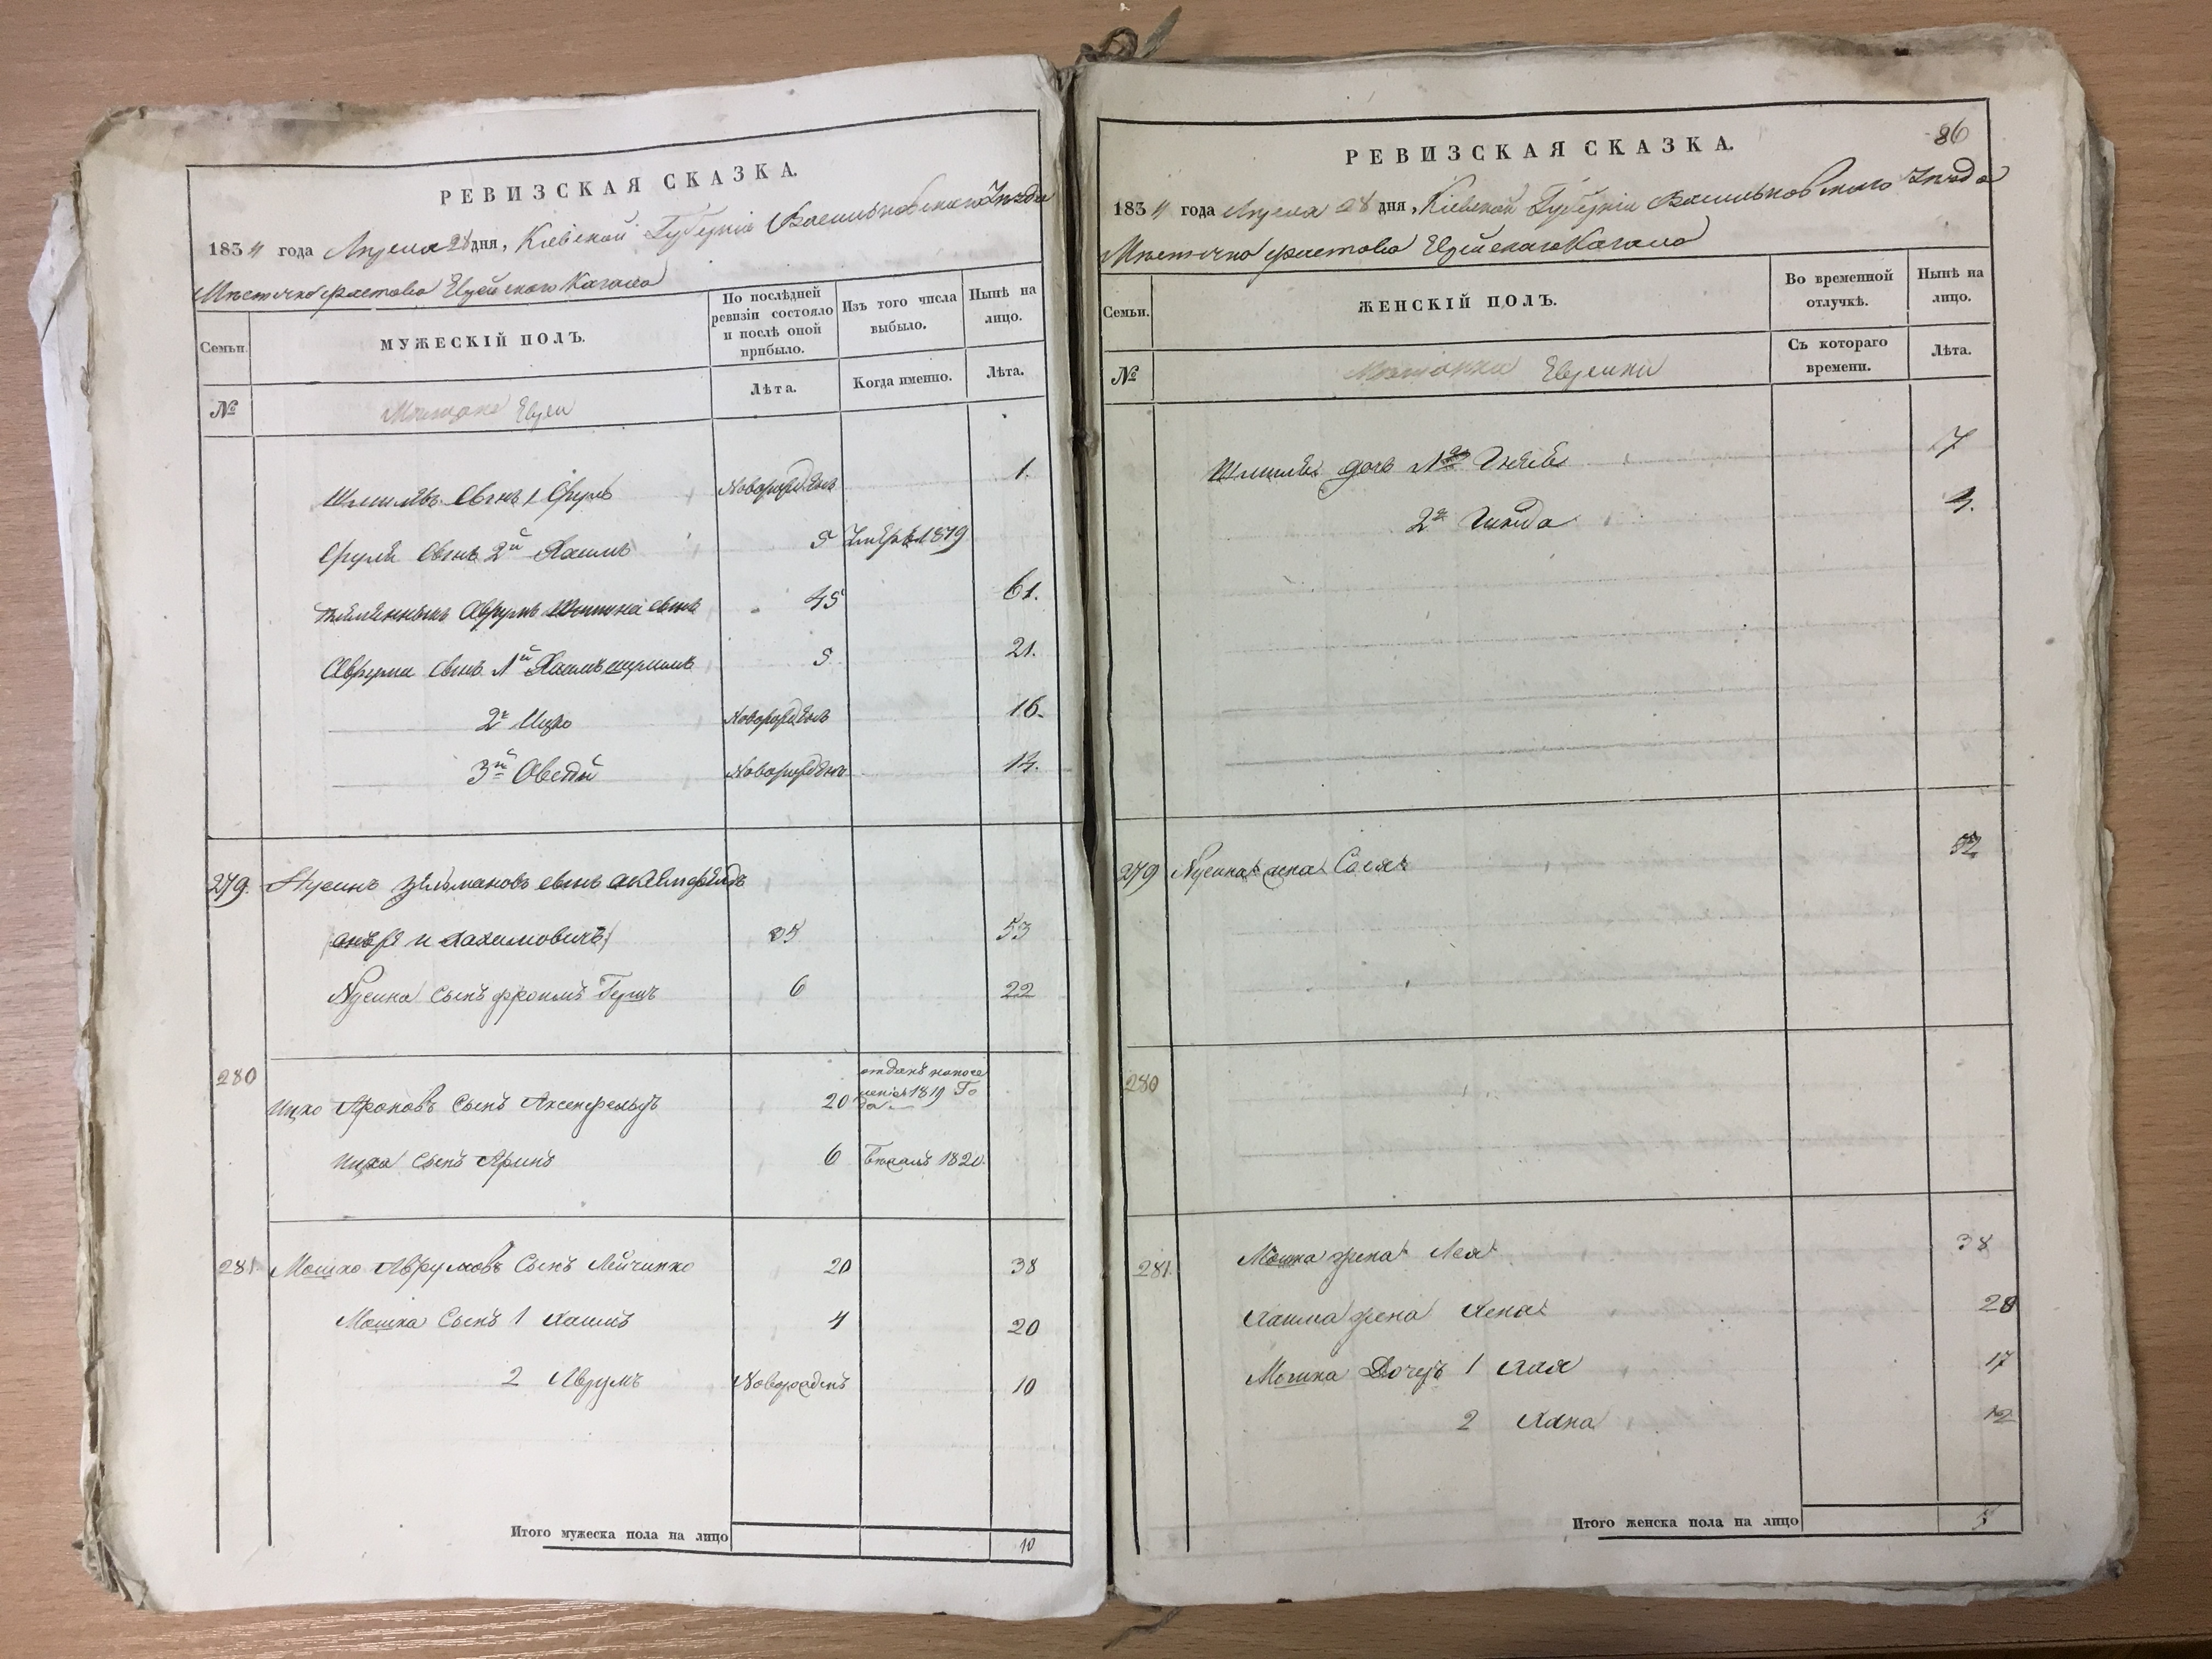 РЕВИЗСКАЯ СКАЗКА.
1834 года Апреля 28 дня, Кіевской Губерніи Васильковскаго Уезда
Местечка Фастова Еврейскаго Кагала
Семьи.
МУЖЕСКІЙ ПОЛЪ.
По послѣдней ревизіи состояло и послѣ оной прибыло.
Изъ того числа выбыло.
Нынѣ на лицо.
№
Лѣта.
Когда именно.
Лѣта.
Мещане Евреи
сынъ 1 Сруль Новорожденъ 1.
Сруля сынъ 2й Хаимъ 5 Умеръ 1819
племянникъ Аврумъ сынъ 45 61.
Аврума сынъ 1й Хаимъ 5 21.
2й Ицко Новорожденъ 16.
3й Овсей Новорожденъ 14.
279. Нусинъ Зельмановъ сынъ
35 53
Нусина Сынъ Фроимъ Гершъ 6 22
280 Ицко Ароновъ Сынъ Аксенфельдъ 20 1819 Года
Ицка Сынъ 6 Бежалъ 1820.
281. Мошко Аврумовъ Сынъ Лейчинко 20 38
Мошка Сынъ 1 Хаимъ 4 20
2 Аврумъ Новорожденъ 10
Итого мужеска пола на лицо 10
86
РЕВИЗСКАЯ СКАЗКА.
1834 года Апреля 28 дня, Кіевской Губерніи Васильковскаго Уезда
Местечка Фастова Еврейскаго Кагала
Семьи.
ЖЕНСКІЙ ПОЛЪ.
Во временной отлучкѣ.
Нынѣ на лицо.
№
Съ котораго времени.
Лѣта.
Мещанки Еврейки
дочь 1я 7
2я
279 Нусина жена Сося 52
280
281. Мошка жена Лея 38
Хаима жена Хена 20
Мошка Дочерь 1 Хая 17
2 Хана 12
Итого женска пола на лицо